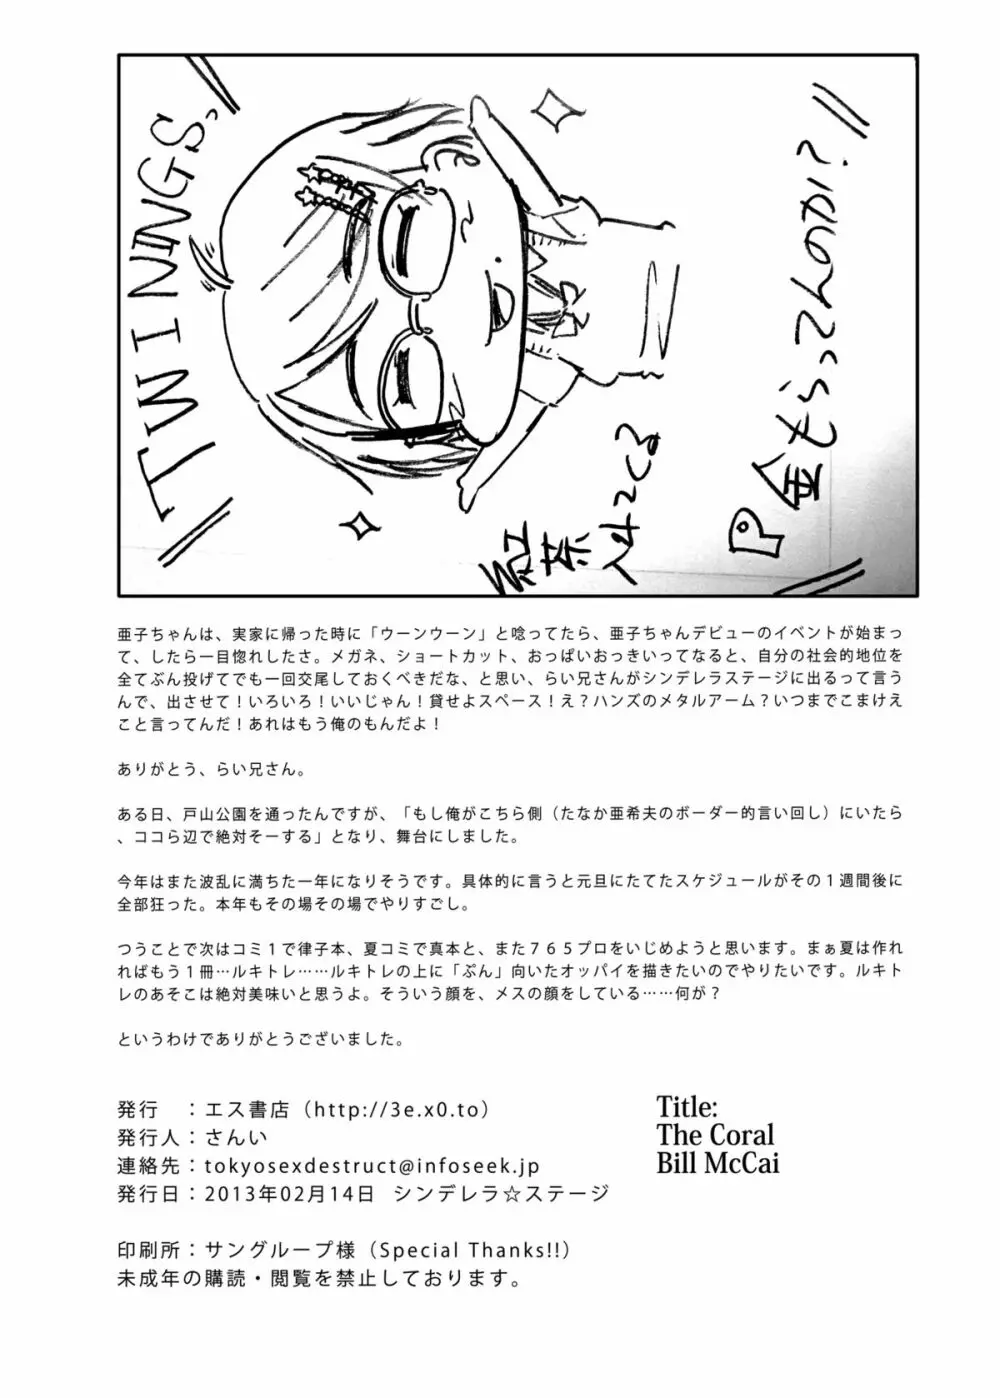 TWININGS,
紅茶すすってる
P金もらってんのか？
亜子ちゃんは、実家に帰った時に「ウーンウーン」と唸ってたら、亜子ちゃんデビューのイベントが始まっ
て、したら一目惚れしたさ。メガネ、ショートカット、おっぱいおっきいってなると、自分の社会的地位を
全てぶん投げてでも一回交尾しておくべきだな、と思い、らい兄さんがシンデレラステージに出るって言う
んで、出させて！いろいろ！いいじゃん！貸せよスペース！え？ハンズのメタルアーム？いつまでこまけえ
こと言ってんだ！あれはもう俺のもんだよ！
ありがとう、らい兄さん。
ある日、戸山公園を通ったんですが、「もし俺がこちら側（たなか亜希夫のボーダー的言い回し）にいたら
、ココら辺で絶対そーする」となり、舞台にしました。
今年はまた波乱に満ちた一年になりそうです。具体的に言うと元旦にたてたスケジュールがその１週間後に
全部狂った。本年もその場その場でやりすごし。
つうことで次はコミ１で律子本、夏コミで真本と、また７６５プロをいじめようと思います。まぁ夏は作れ
ればもう１冊…ルキトレ……ルキトレの上に「ぷん」向いたオッパイを描きたいのでやりたいです。ルキト
レのあそこは絶対美味いと思うよ。そういう顔を、メスの顔をしている……何が？
というわけでありがとうございました。
発行　：エス書店（http://3e.x0.to）
発行人：さんい
連絡先：tokyosexdestruct@infoseek.jp
発行日：2013年02月14日 シンデレラ☆ステージ
印刷所：サングループ様（Special Thanks!!）
未成年の購読・閲覧を禁止しております。
Title:
The Coral
Bill McCai